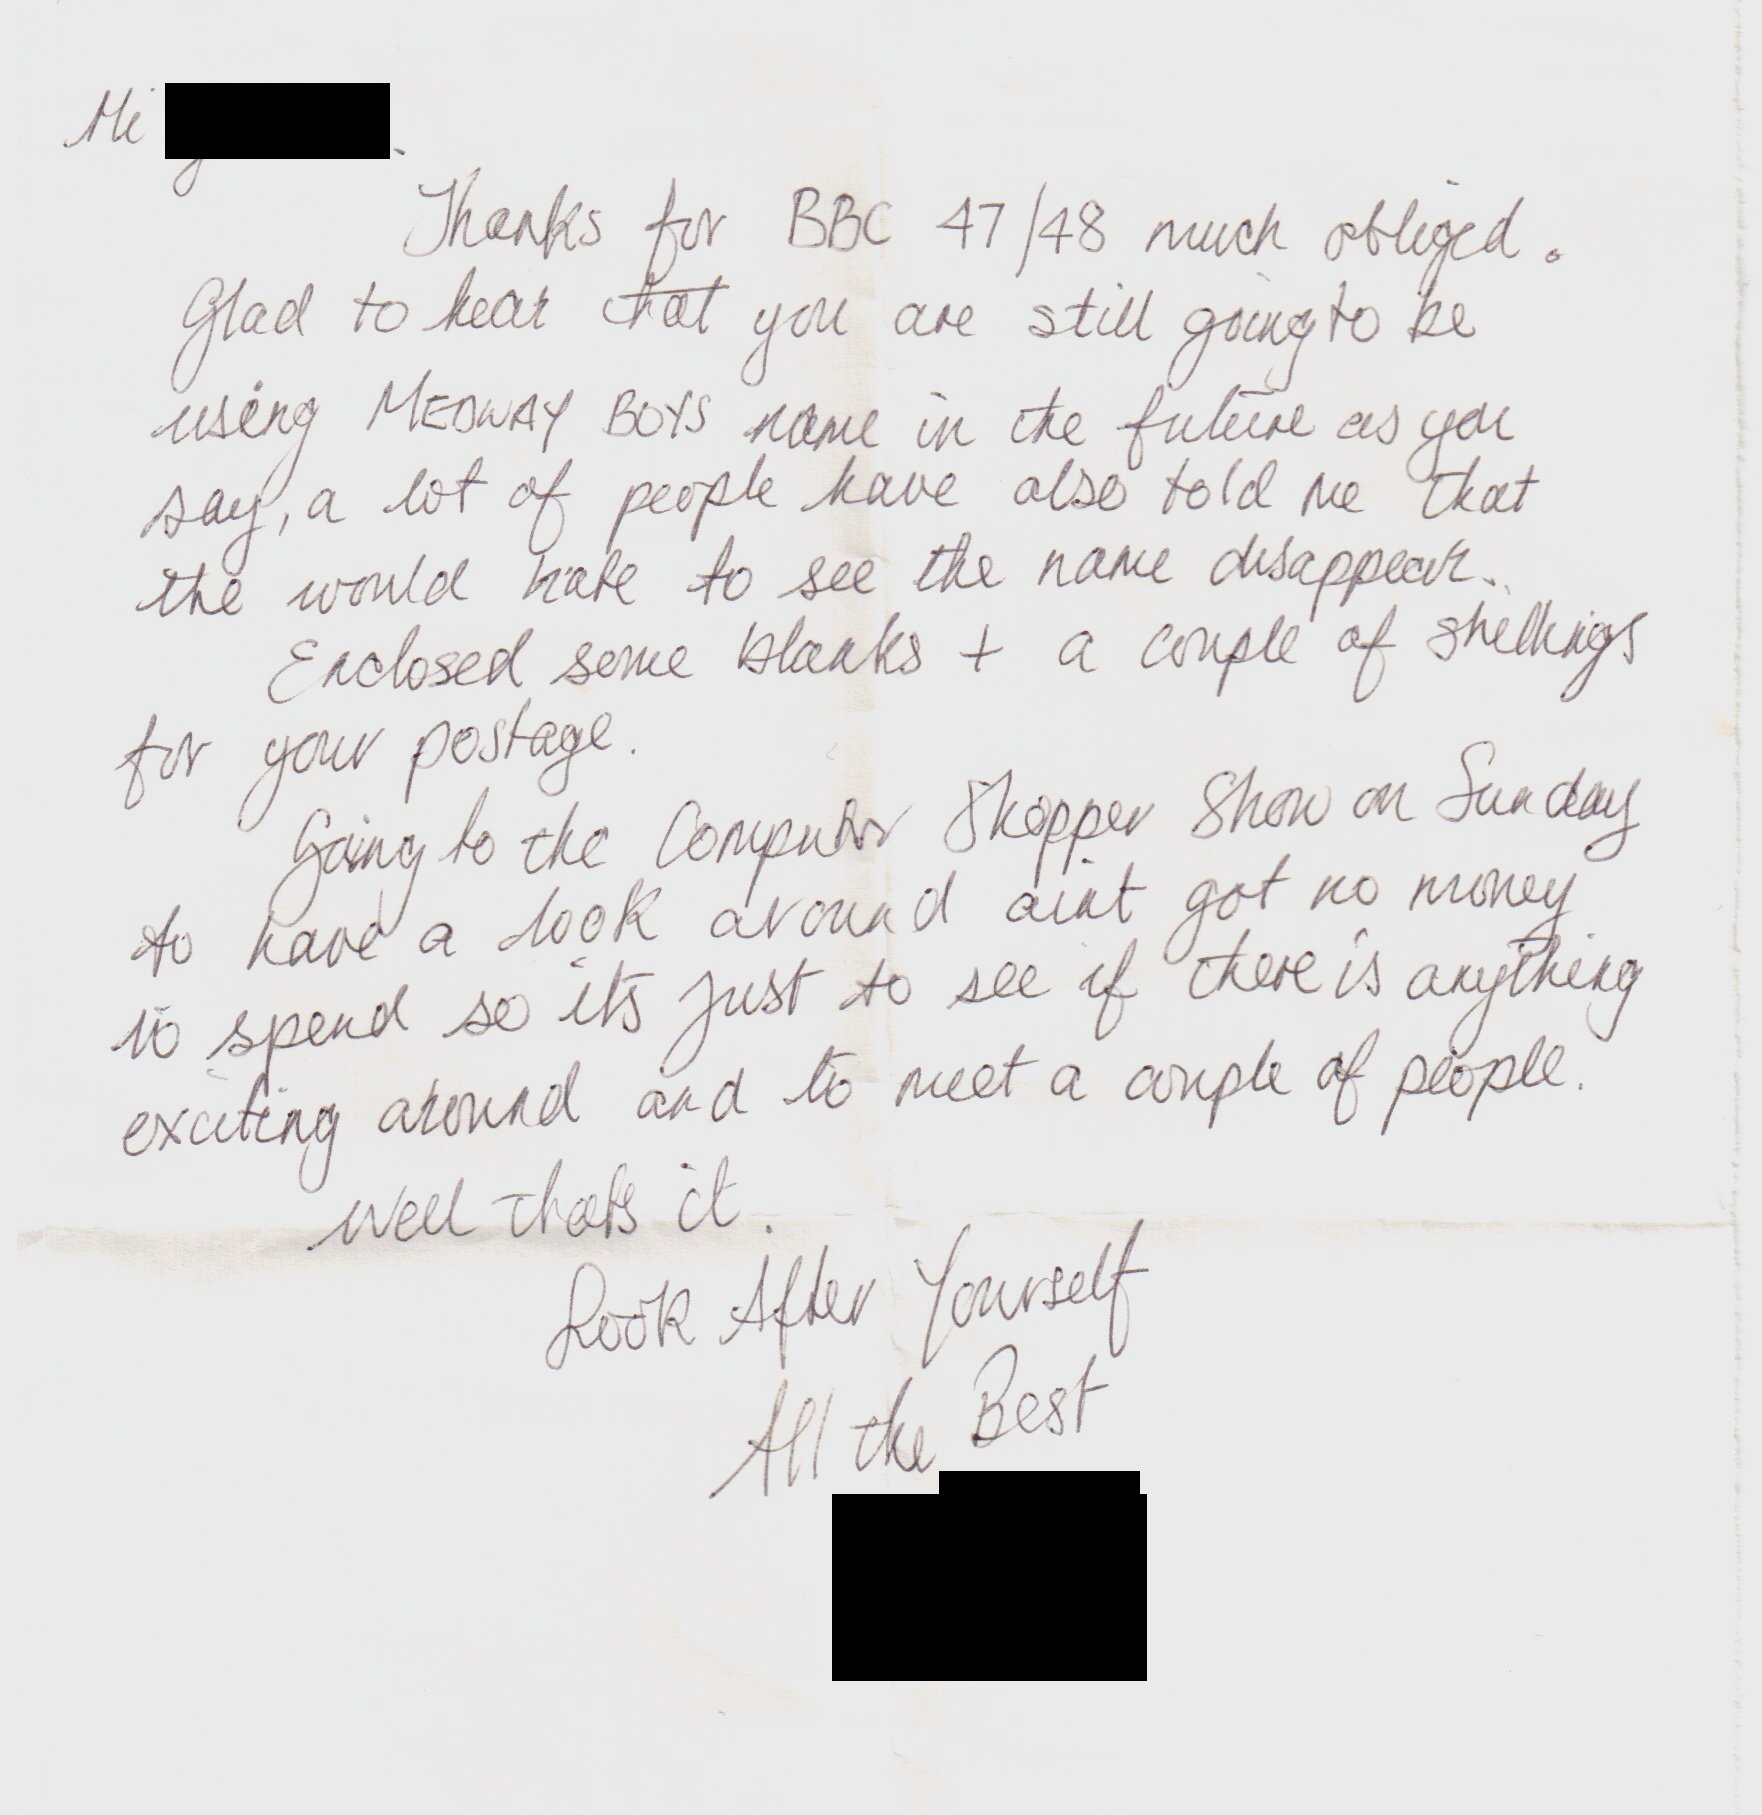 Hi .
Thanks for BBC 47/48 much obliged.
Glad to hear that you are still going to be
using MEDWAY BOYS name in the future as you
say, a lot of people have also told me that
the would hate to see the name disappear.
Enclosed some blanks + a couple of shillings
for your postage.
Going to the Computer Shopper Show on Sunday
to have a look around aint got no money
to spend so its just to see if there is anything
exciting around and to meet a couple of people.
Well thats it.
Look After Yourself
All the Best